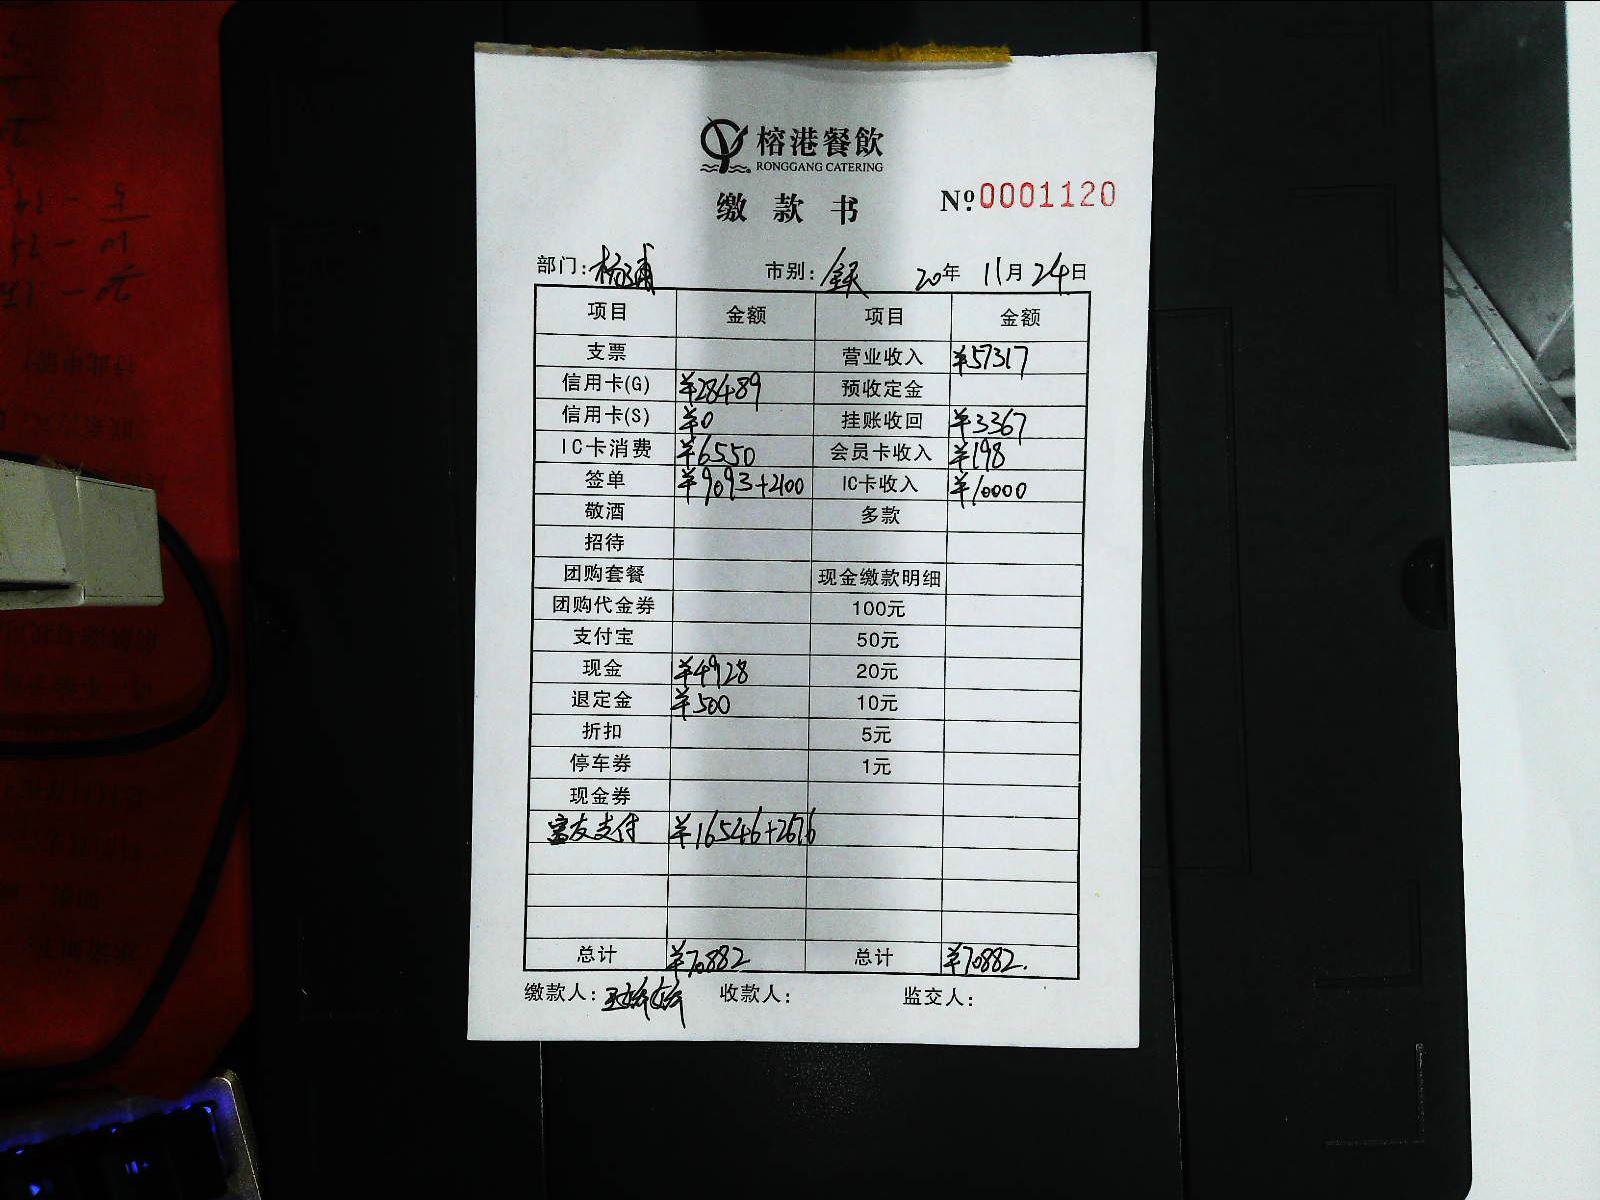 榕港餐飲
RONGGANG CATERING
缴款书 No.0001120
部门:杨浦 市别:全天 20年 11月 24日
项目 金额 项目 金额
支票 营业收入 ¥57317
信用卡(G) ¥28489 预收定金
信用卡(S) ¥0 挂账收回 ¥3367
IC卡消费 ¥6550 会员卡收入 ¥198
签单 ¥9093+2100 IC卡收入 ¥10000
敬酒 多款
招待
团购套餐 现金缴款明细
团购代金券 100元
支付宝 50元
现金 ¥4928 20元
退定金 ¥500 10元
折扣 5元
停车券 1元
现金券
富友支付 ¥16546+2676
总计 ¥70882 总计 ¥70882.
缴款人: 收款人: 监交人: